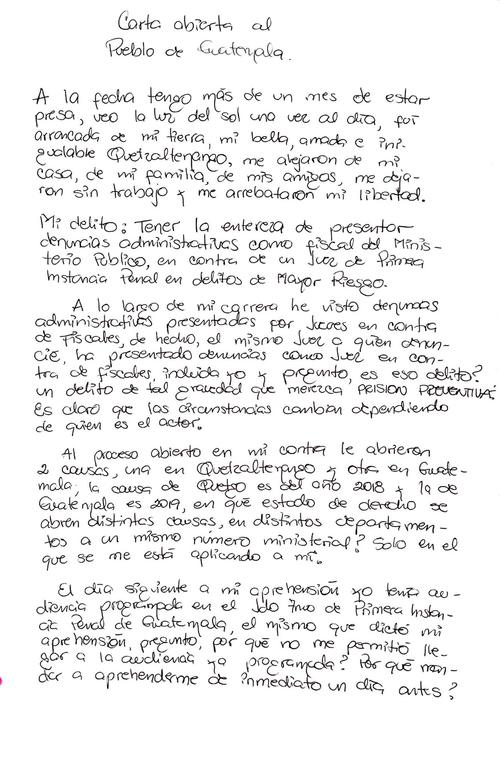 Carta abierta al
Pueblo de Guatemala.
A la fecha tengo más de un mes de estar
presa, veo la luz del sol una vez al día, fui
arrancada de mi tierra, mi bella, amada e ini-
gualable Quetzaltenango, me alejaron de mi
casa, de mi familia, de mis amigos, me deja-
ron sin trabajo y me arrebataron mi libertad.
Mi delito: Tener la entereza de presentar
denuncias administrativas como fiscal del Minis-
terio Público, en contra de un Juez de Primera
Instancia Penal en delitos de Mayor Riesgo.
A lo largo de mi carrera he visto denuncias
administrativas presentadas por Jueces en contra
de Fiscales, de hecho, el mismo Juez a quien denun-
cié, ha presentado denuncias como Juez en con-
tra de fiscales, incluida yo y pregunto, es eso delito?
un delito de tal gravedad que merezca PRISION PREVENTIVA?
Es claro que las circunstancias cambian dependiendo
de quien es el actor.
Al proceso abierto en mi contra le abrieron
2 causas, una en Quetzaltenango y otra en Guate-
mala; la causa de Quetgo es del año 2018 y la de
Guatemala es 2019, en qué estado de derecho se
abren distintas causas, en distintos departamen-
tos a un mismo número ministerial? Solo en el
que se me está aplicando a mí.
El día siguiente a mi aprehensión yo tenía au-
diencia programada en el Jdo 7mo de Primera Instan-
cia Penal de Guatemala, el mismo que dictó mi
aprehensión, pregunto, por qué no me permitió lle-
gar a la audiencia ya programada? Por qué man-
dar a aprehenderme de inmediato un día antes?